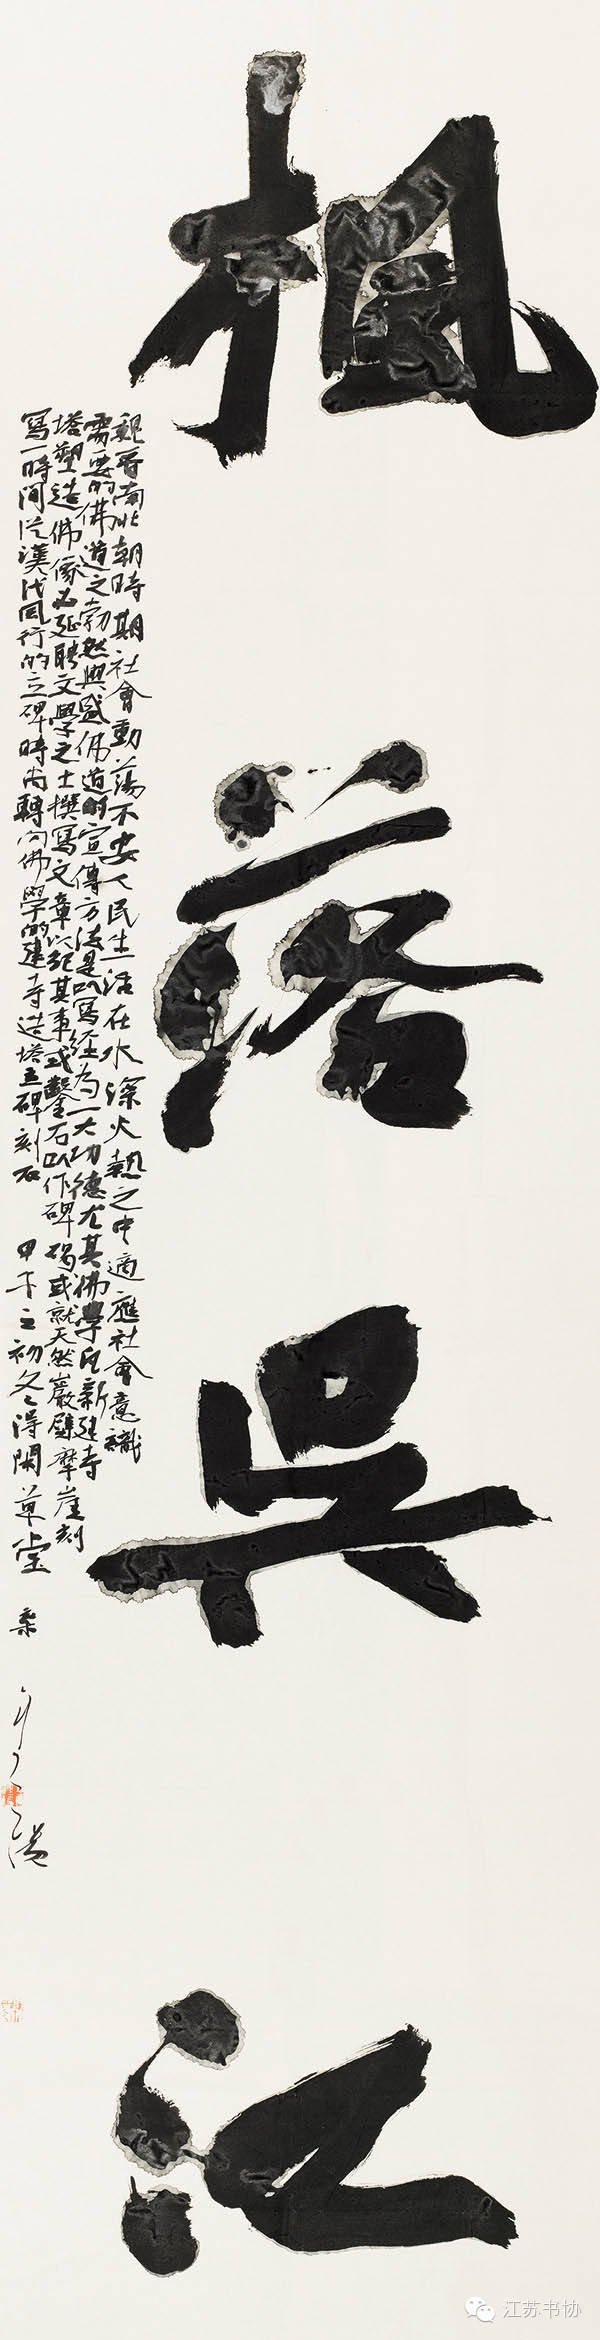 楓落吳江
魏晉南北朝時期社會動蕩不安人民生活在水深火熱之中適應社會意識
需要的佛道之勃然興盛佛道的宣傳方法是以寫經為一大功德尤其佛學凡新建寺
塔塑造佛像必延聘文學之士撰寫文章以紀其事或鑿石以作碑碣或就天然巖壁摩崖刻
寫一時間從漢代風行的立碑時尚轉向佛學的建寺造塔立碑刻石
甲午之初冬之得閑草堂
江苏书协